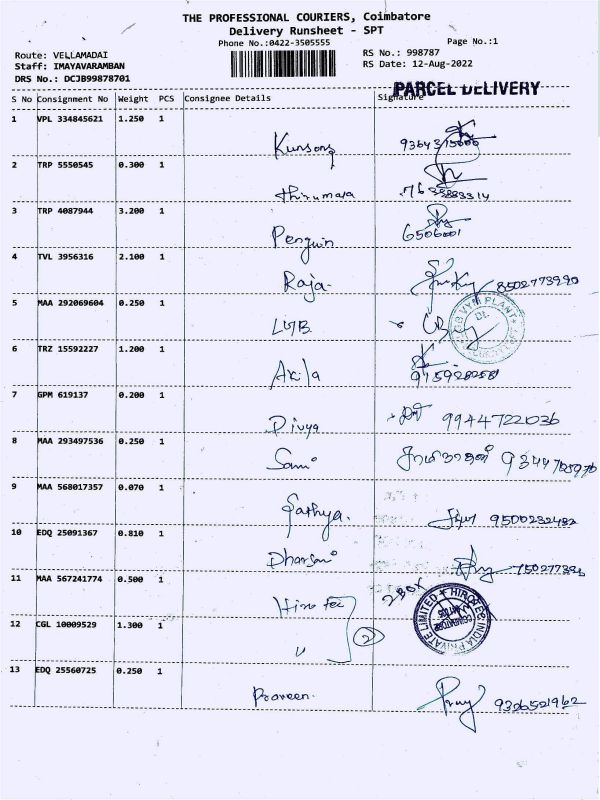 THE PROFESSIONAL COURIERS, Coimbatore
Delivery Runsheet - SPT
Phone No.:0422-3505555
Page No.:1
Route: VELLAMADAI
RS No.: 998787
Staff: IMAYAVARAMBAN
RS Date: 12-Aug-2022
DRS No.: DCJB99878701
PARCEL DELIVERY
S No Consignment No Weight PCS Consignee Details Signature
1 VPL 334845621 1.250 1
2 TRP 5550545 0.300 1
thirumala
3 TRP 4087944 3.200 1
Penguin 6506001
4 TVL 3956316 2.100 1
Raja. 8502773990
5 MAA 292069604 0.250 1
LGB
6 TRZ 15592227 1.200 1
Akila
7 GPM 619137 0.200 1
Divya 9944722036
8 MAA 293497536 0.250 1
Sami
9 MAA 568017357 0.070 1
Sathya. 9500232482
10 EDQ 25091367 0.810 1
Dharsani
11 MAA 567241774 0.500 1
Hiro tec 2 BOX
HIROTEC INDIA PRIVATE LIMITED
12 CGL 10009529 1.300 1
" 2
13 EDQ 25560725 0.250 1
Praveen. 9306521962